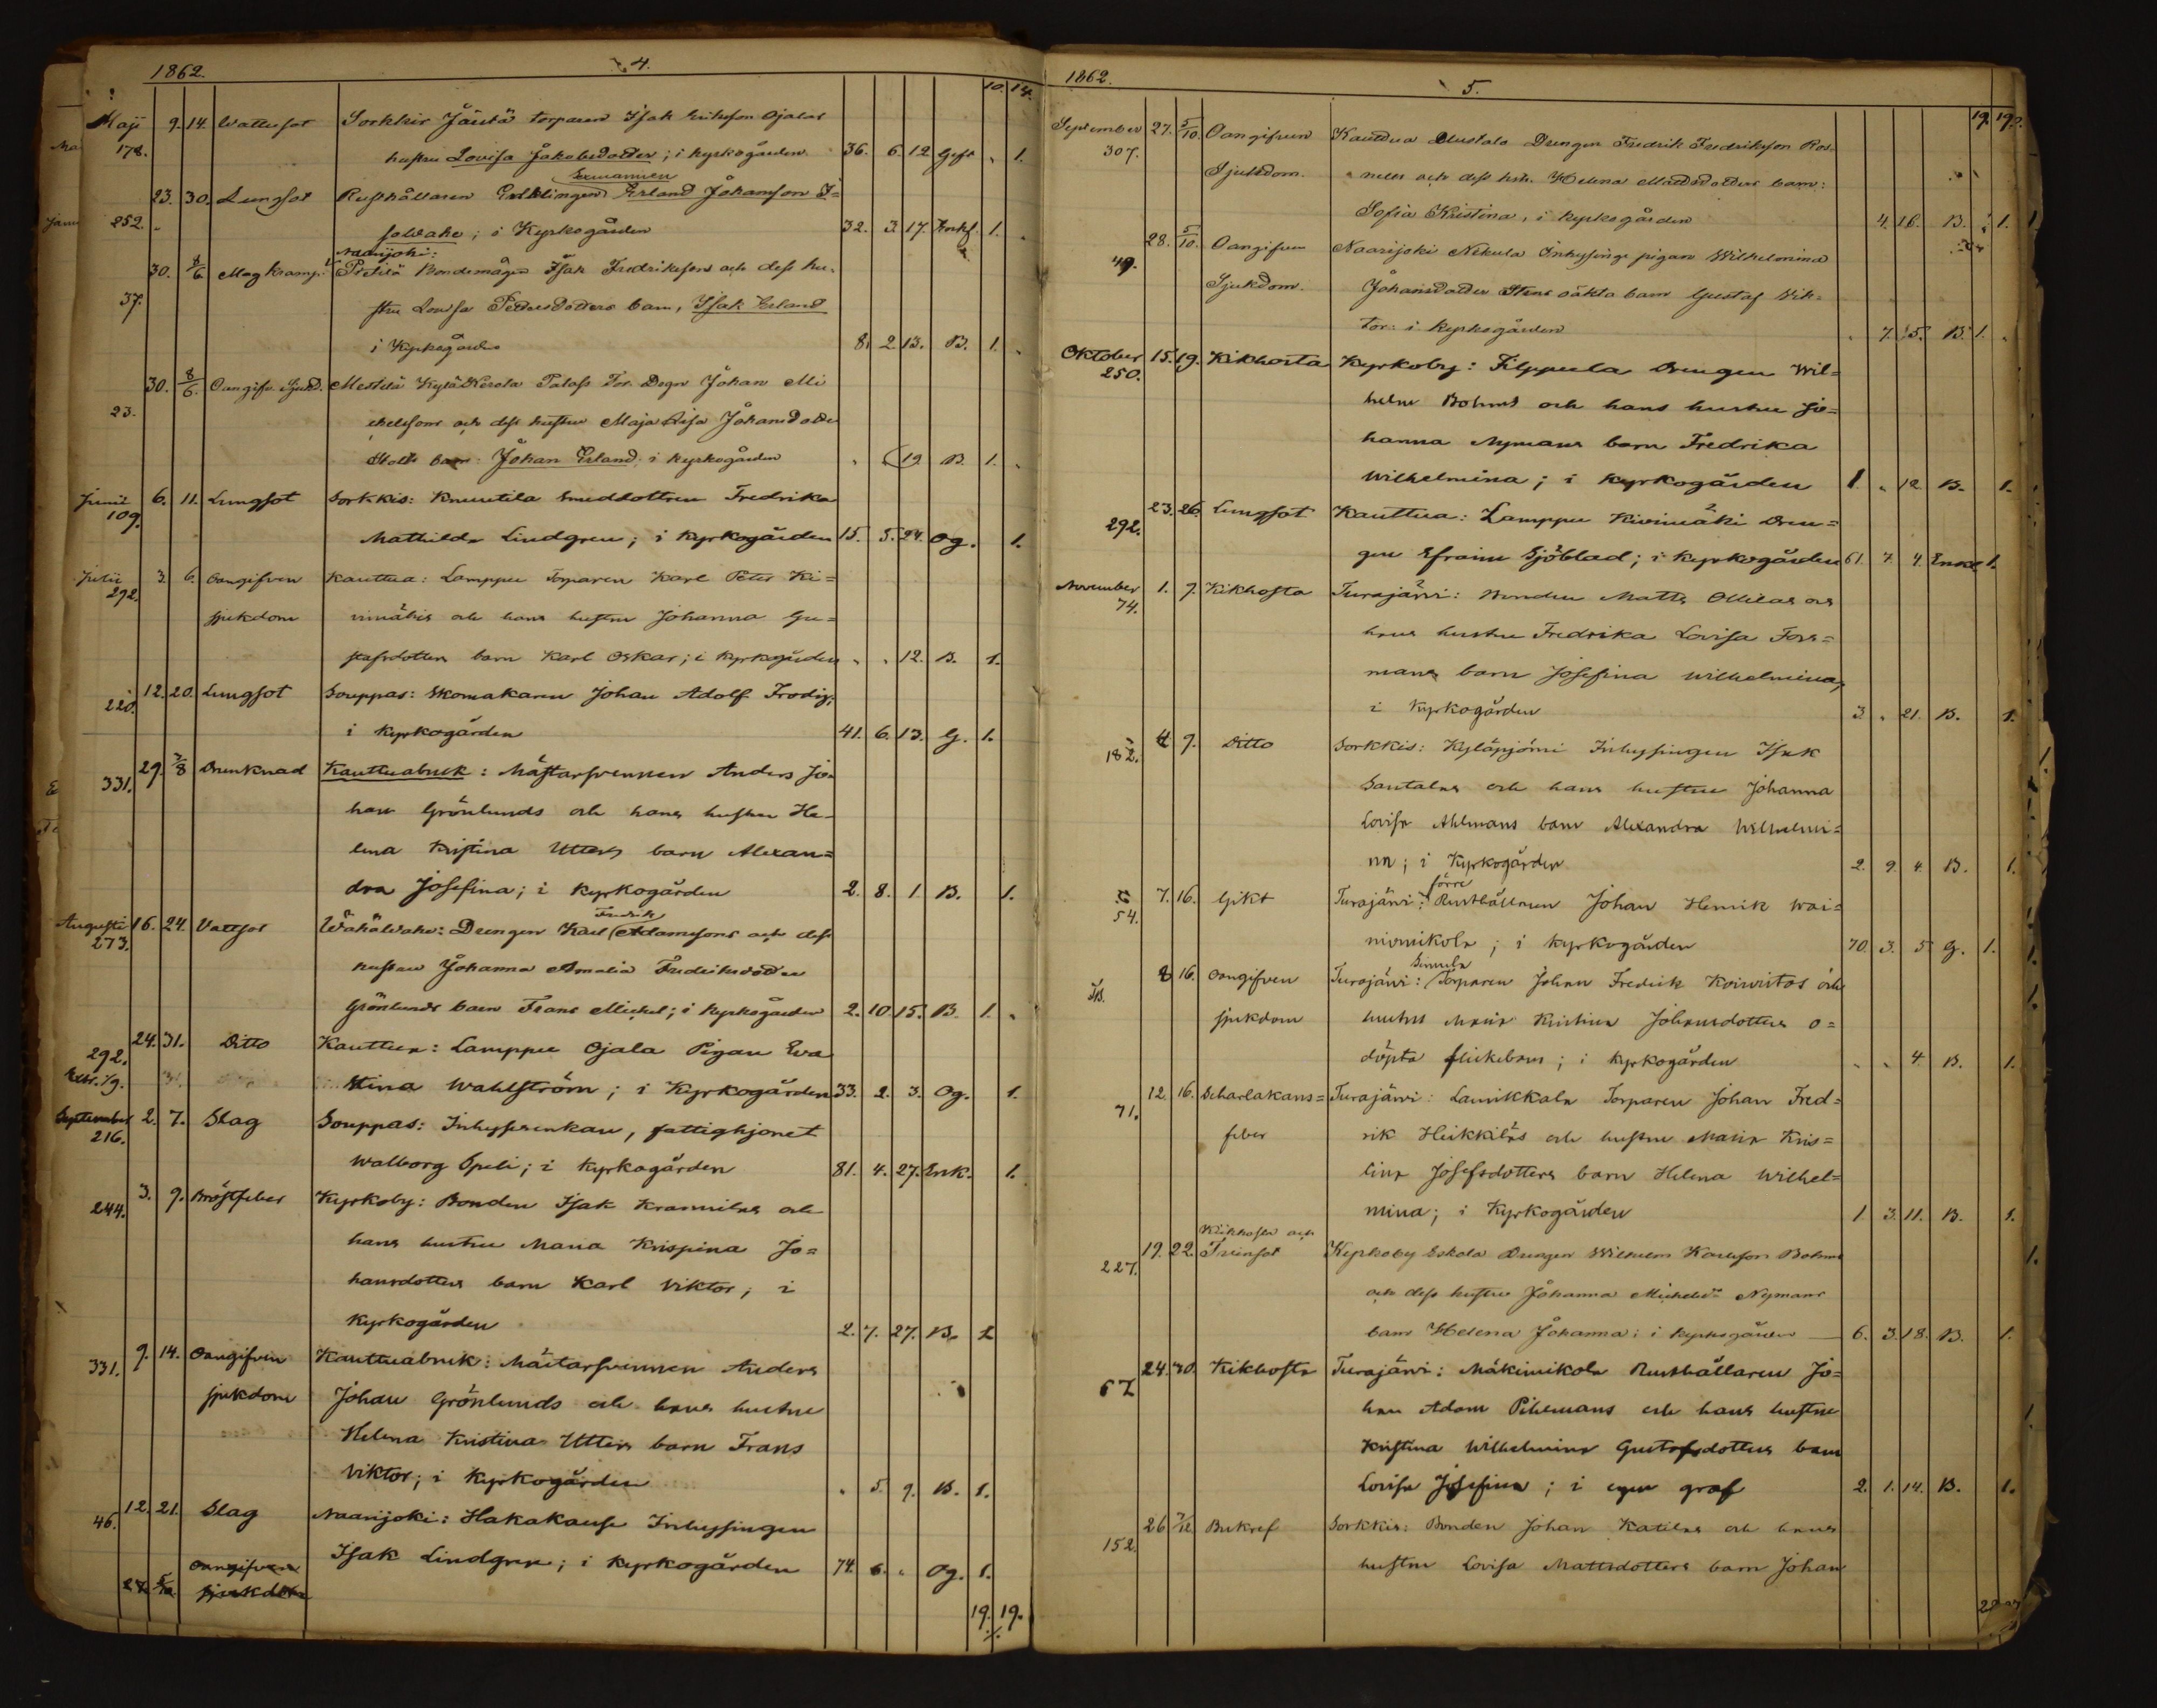 1862. 4.
10. 14.
Maji 9. 14. Wattusot Sorkkis Jäsikä torparen Isak Eriksson Ojalas
178. hustru Lovisa Jakobsdotter; i kyrkogården 36. 6. 12 Gift „ 1.
Exmannen
23. 30. Lungsot Rusthållaren Erland Johansson I=
252. sowake; i Kyrkogården 32. 3. 17. Enkl. 1. „
Naarijoki:
30. 8/6 Magkramp Prettilä Bondemågen Isak Fredrikssons och dess hu-
37. stru Lovisa Pettersdotters barn, Isak Erland
i Kyrkogården 8. 2. 13. B. 1. „
30. 8/6. Oangifv. Sjukd. Mestilä Kylä Kerola Johan Mi
23. chelssons och dess hustru Maja Lisa Johansdotter
barn: Johan Erland; i kyrkogården „ 19. B. 1. „
Junii 6. 11. Lungsot Sorkkis: Knuutila Smeddottren Fredrika
109. Mathilda Lindgren; i kyrkogården 15. 5. 24. Og. 1.
Julii 3. 6. Oangifven Kauttua: Lamppu Torparen Karl Peter Ki=
292. sjukdom vimäkis och hans hustru Johanna Gu=
stafsdotters barn Karl Oskar; i kyrkogården „ „ 12. B. 1.
12. 20. Lungsot Souppas: Skomakaren Johan Adolf Frodig;
220. i kyrkogården 41. 6. 13. G. 1.
29. 3/8 Drunknad Kauttuabruk: Mästarsvennen Anders Jo-
331. han Grönlunds och hans hustru He-
lena Kristina Utters barn Alexan=
dra Josefina; i kyrkogården 2. 8. 1. B. 1.
Fredrik
Augusti 16. 24. Vattsot Wähäwahe: Drengen Karl Adamssons och dess
273. hustru Johanna Amalia Fredriksdotter
Grönlunds barn Frans Michel; i kyrkogården 2. 10. 15. B. 1. „
24. 31. Ditto Kauttua: Lamppu Ojala Pigan Eva
292.
Extr. 1/9. Stina Wahlström; i Kyrkogården 33. 2. 3. Og. 1.
September 2. 7. Slag Souppas: Inhysesenkan, fattighjonet
216. Walborg Speli; i kyrkogården 81. 4. 27. Enk. 1.
3. 9. Bröstfeber Kyrkoby: Bonden Isak Krannilas och
244. hans hustru Maria Krispina Jo=
hansdotters barn Karl Viktor; i
kyrkogården 2. 7. 27. B. 1
9. 14. Oangifven Kauttuabruk: Mästarsvennen Anders
331. sjukdom Johan Grönlunds och hans hustru
Helena Kristina Utters barn Frans
Viktor; i kyrkogården „ 5. 9. B. 1.
12. 21. Slag Naarijoki: Hakakause Inhysingen
46. Isak Lindgren; i kyrkogården 74. 6. „ Og. 1.
Oangifven
27. 5/10 sjukdom
19. 19.
1862. 5.
19. 19.
September 27. 5/10. Oangifven Kauttua Alustalo Drengen Fredrik Fredriksson Ros-
307. Sjukdom. nells och dess hstr. Helena Mattsdotters barn:
Sofia Kristina, i kyrkogården „ 4. 16. B. „ 1.
28. 5/10. Oangifven Naarijoki Nikula Inhysings pigan Wilhelmina
49. Sjukdom. Johansdotter Stens oäkta barn Gustaf Wik=
tor: i kyrkogården „ 7. 15. B. 1. „
Oktober 15. 19. Kikhosta Kyrkoby: Filppula Drengen Wil=
250. helm Bohms och hans hustru Jo=
hanna Nymans barn Fredrika
Wilhelmina; i kyrkogården 1. „ 12. B. 1.
23. 26. Lungsot Kauttua: Lamppu Kivimäki Dren=
292. gen Efraim Sjöblad; i kyrkogården 61. 7. 4. Enkl. 1.
November 1. 9. Kikhosta Turajärvi: Bonden Matts Ollilas och
74. hans hustru Fredrika Lovisa Fors=
mans barn Josefina Wilhelmina;
i kyrkogården 3. „ 21. B. 1.
4. 9. Ditto Sorkkis: Kyläpjörni Inhysingen Isak
182. Santalas och hans hustru Johanna
Lovisa Ahlmans barn Alexandra Wilhelmi=
na; i kyrkogården 2. 9. 4. B. 1.
förre
7. 16. Gikt Turajärvi: Rusthållaren Johan Henrik Wai=
54. niomikola; i kyrkogården 70. 3. 5. G. 1.
Simula
8. 16. Oangifven Turajärvi: Torparen Johan Fredrik Koivistos och
sjukdom hustrus Maria Kristina Johansdotters o=
döpta flickebarn; i kyrkogården „ „ 4. B. 1.
12. 16. Scharlakans= Turajärvi: Laurikkala Torparen Johan Fred=
71. feber rik Heikkiläs och hustru Maria Kris=
tina Josefsdotters barn Helena Wilhel=
mina; i kyrkogården 1. 3. 11. B. 1.
Kikhosta och
19. 22. Trånsot Kyrkoby Eskola Drengen Wilhelm Karlsson Bohms
227. och dess hustru Johanna Michelsdr Nymans
barn Helena Johanna; i kyrkogården — 6. 3. 18. B. 1.
24. 30. Kikhosta Turajärvi: Mäkimikola Rusthållaren Jo=
67. han Adam Pihlmans och hans hustru
Kristina Wilhelmina Gustafsdotters barn
Lovisa Josefina; i egen graf 2. 1. 14. B. 1.
26. 7/12 Bukref Sorkkis: Bonden Johan Katilas och hans
152. hustru Lovisa Mattsdotters barn Johan